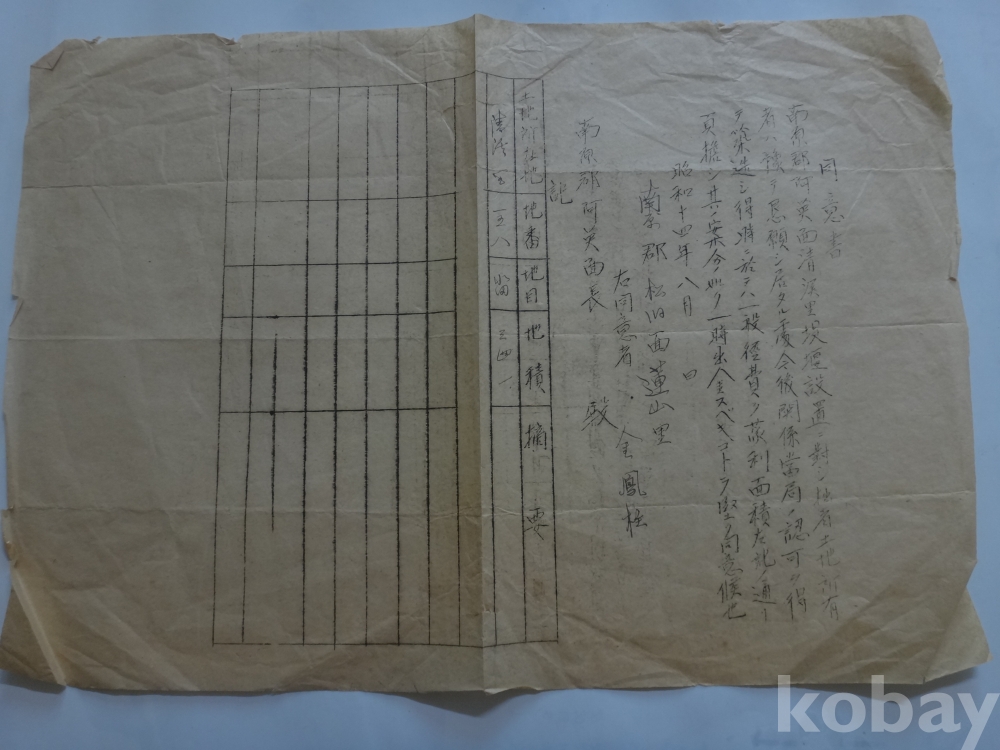 同意書
南原郡阿英面清溪里堤堰設置ニ對シ 土地所有
者ハ 懇願シ居タル處今後關係當局ノ認可ヲ得
ヲ築造シ得ル時ニ於テハ一般經費ノ蒙利面積左記ノ通リ
負擔シ其ノ案分ノ如ク一時出金スベキコトヲ堅ク同意候也
昭和十四年八月 日
南原郡松洞面蓮山里
右同意者 金鳳柱
南原郡阿英面長 殿
記
土地所在地 地番 地目 地積 摘要
里 一五八 畓 三四一
kobay